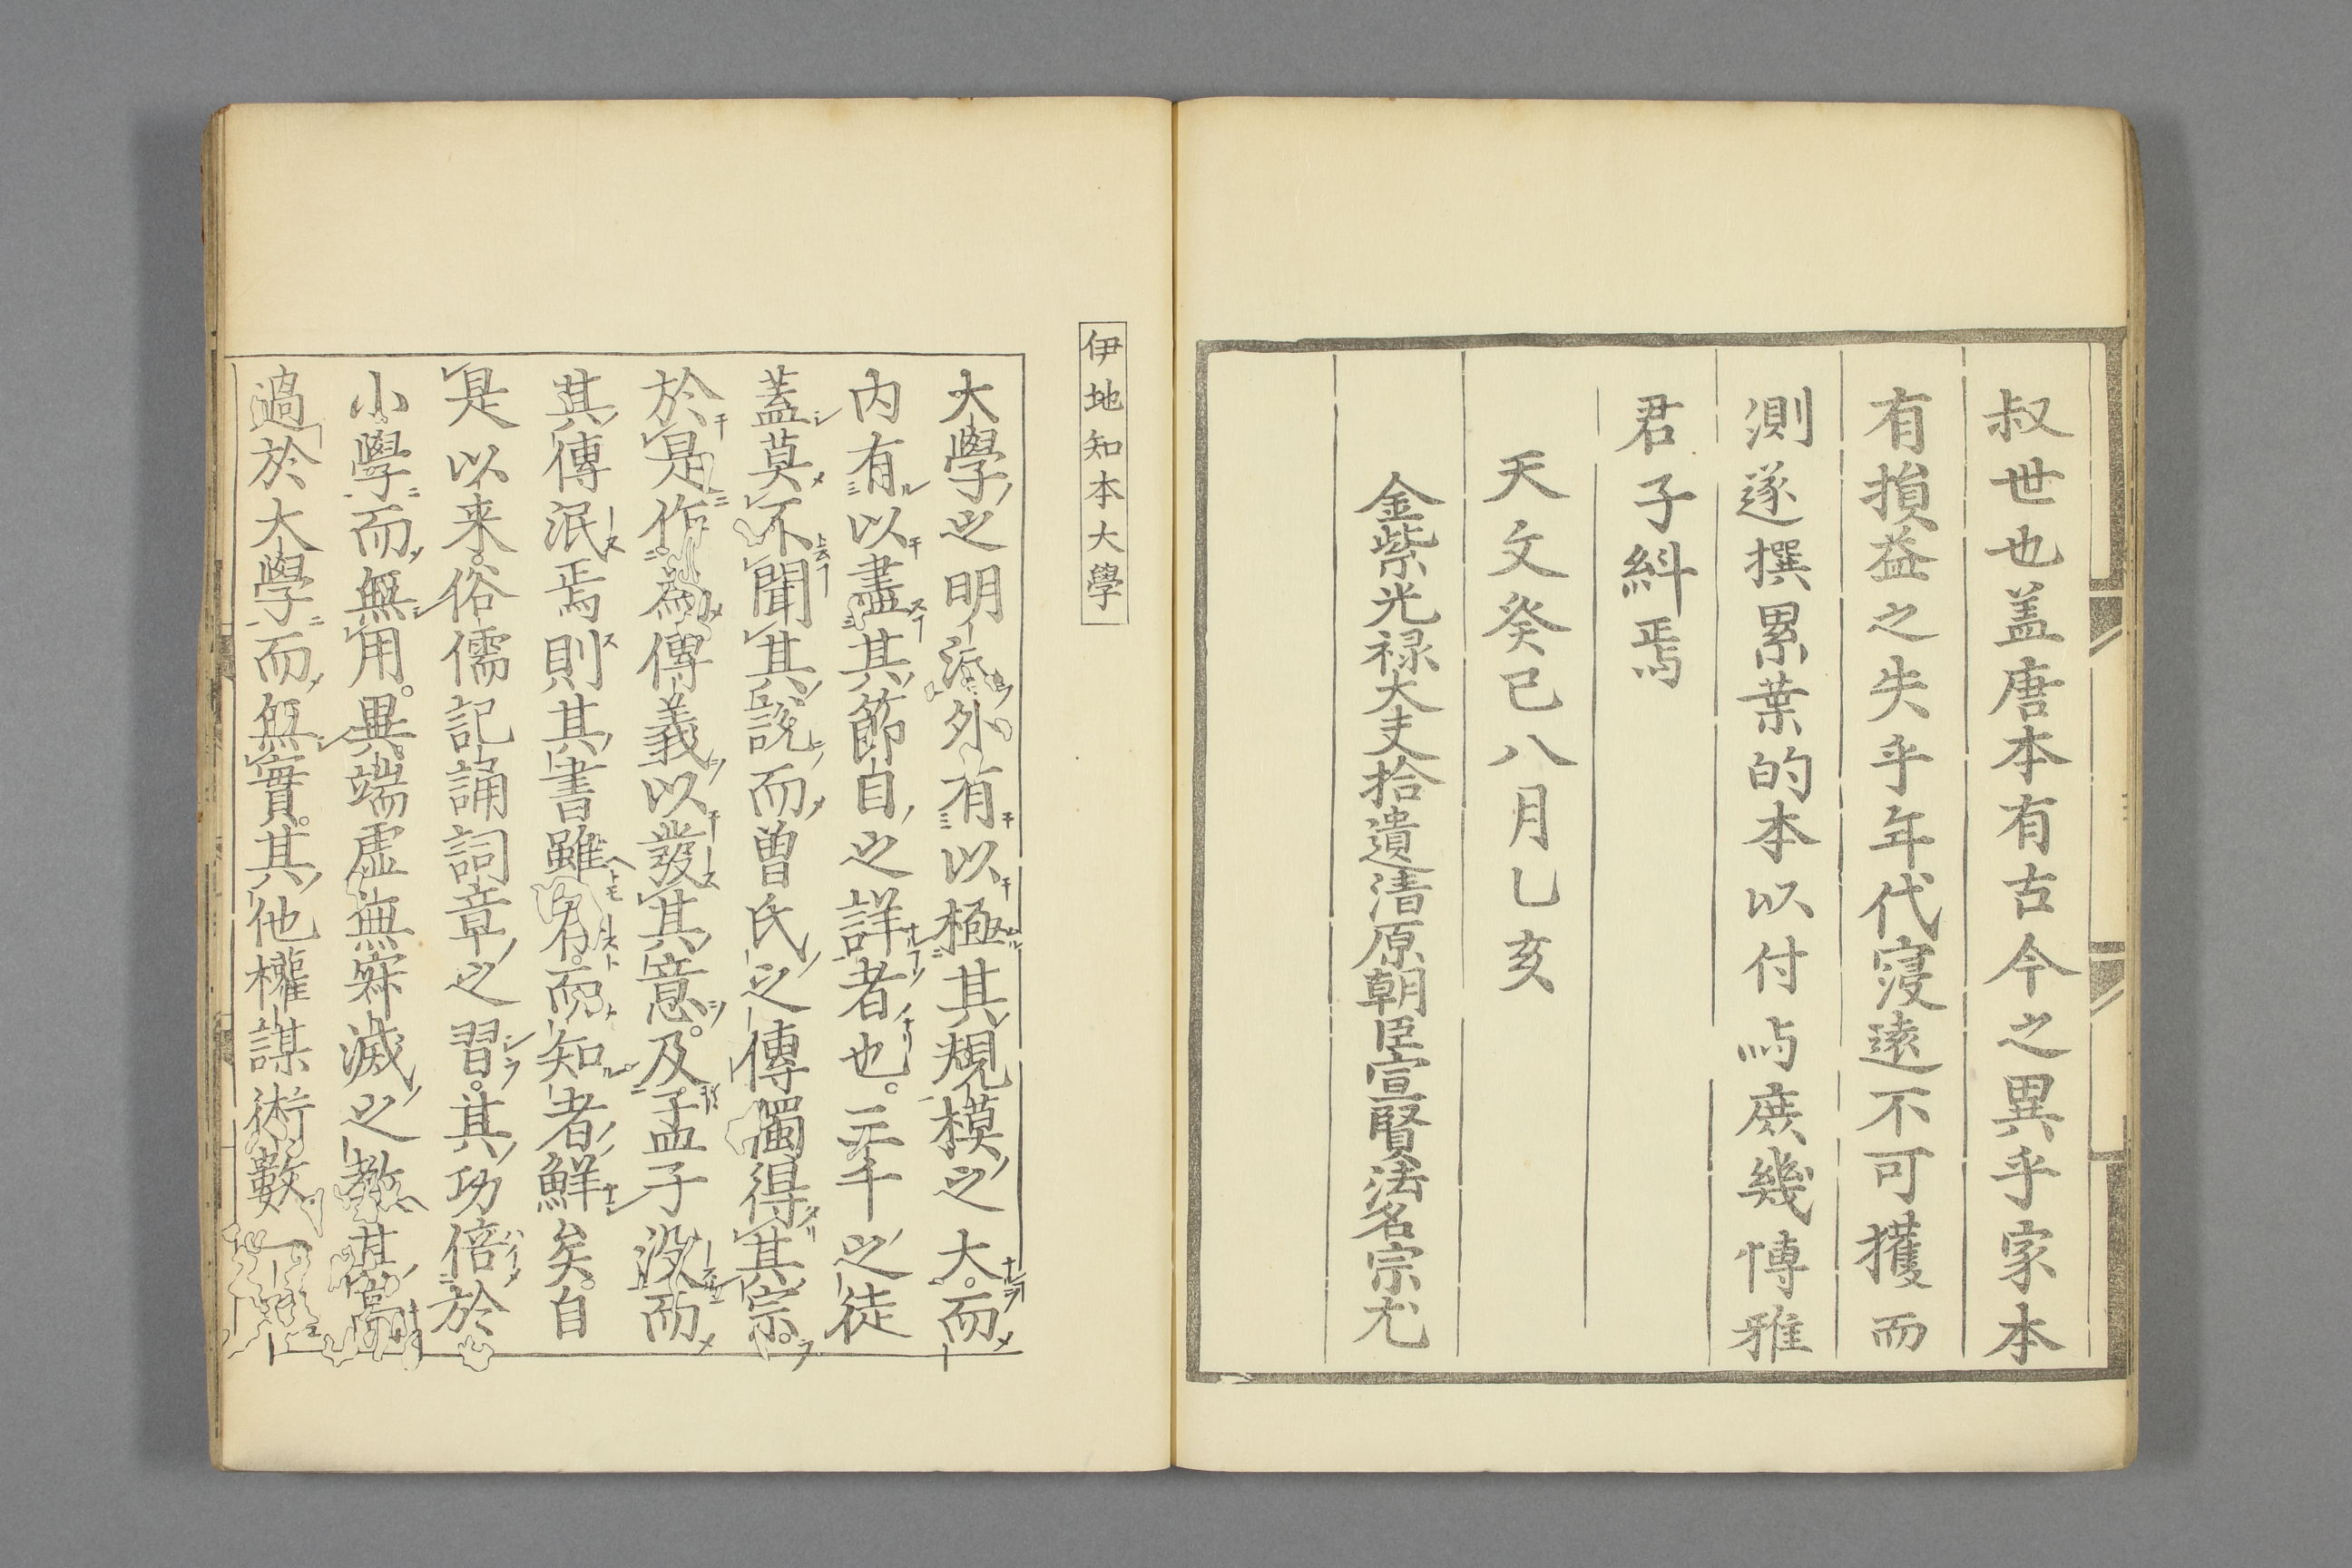 叔世也盖唐本有古今之異乎家本
有損益之失乎年代寖遠不可獲而
測遂撰累葉的本以付与庶幾博雅
君子糾焉
天文癸巳八月乙亥
金紫光禄大夫拾遺清原朝臣宣賢法名宗尤
伊地知本大學
大學之明派外有以極其規模之大而
内有以盡其節自之詳者也三千之徒
蓋莫不聞其説而曽氏之傳獨得其宗
於是作為傳義以發其意及孟子没而
其傳泯焉則其書雖存而知者鮮矣自
是以来俗儒記誦詞章之習其功倍於
小學而無用異端虚無寂滅之教其高
過於大學而無實其他權謀術數